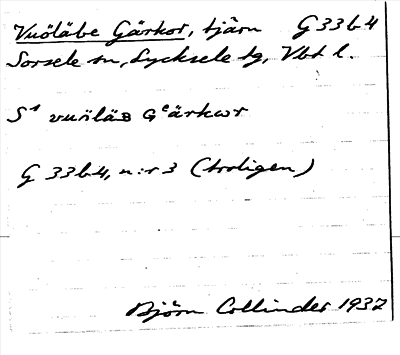 Vuöläbe Gärkor, tjärn G 33 b 4
Sorsele sn, Lycksele tg, Vbt l.
S¹ vuöläʙ Gᵉärkwr
G 33 b 4, n:r 3 (troligen)
Björn Collinder 1937